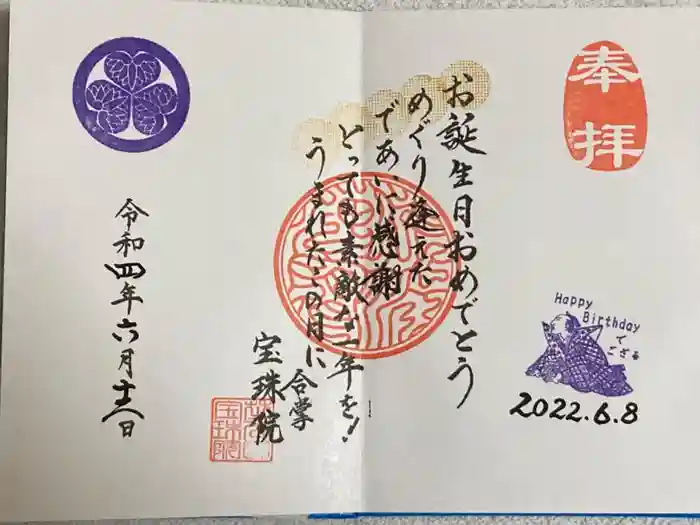 奉拝
Happy
Birthday
で
ござる
2022.6.8
お誕生日おめでとう
めぐり逢えた
であいに感謝
とっても素敵な一年を!
うまれたこの月に
合掌
宝珠院
宝珠院
令和四年六月十八日